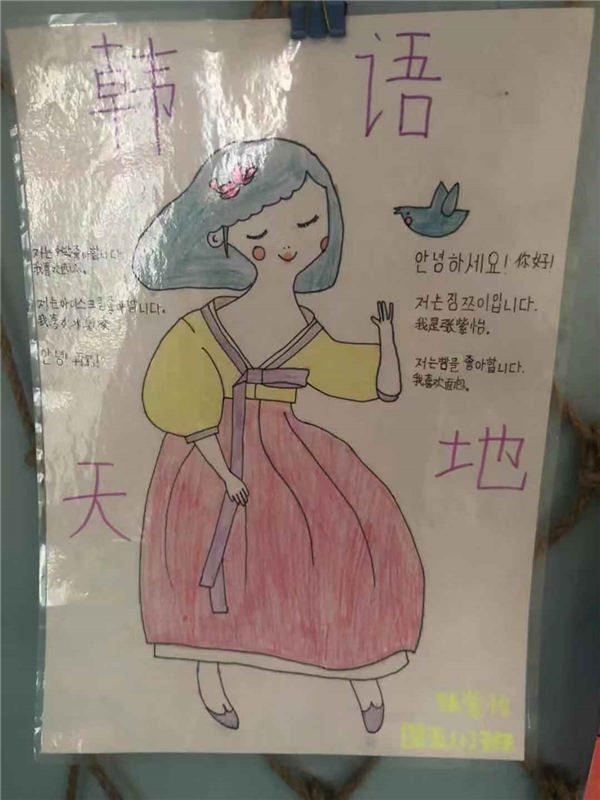 韩语
저는수박좋아합니다.
我喜欢西瓜。
저는아이스크림좋아합니다.
我喜
안녕! 再见!
안녕하세요! 你好!
저는짐쪼이입니다.
我是张紫怡。
저는빵을 좋아합니다.
我喜欢面包。
天地
张紫怡
班